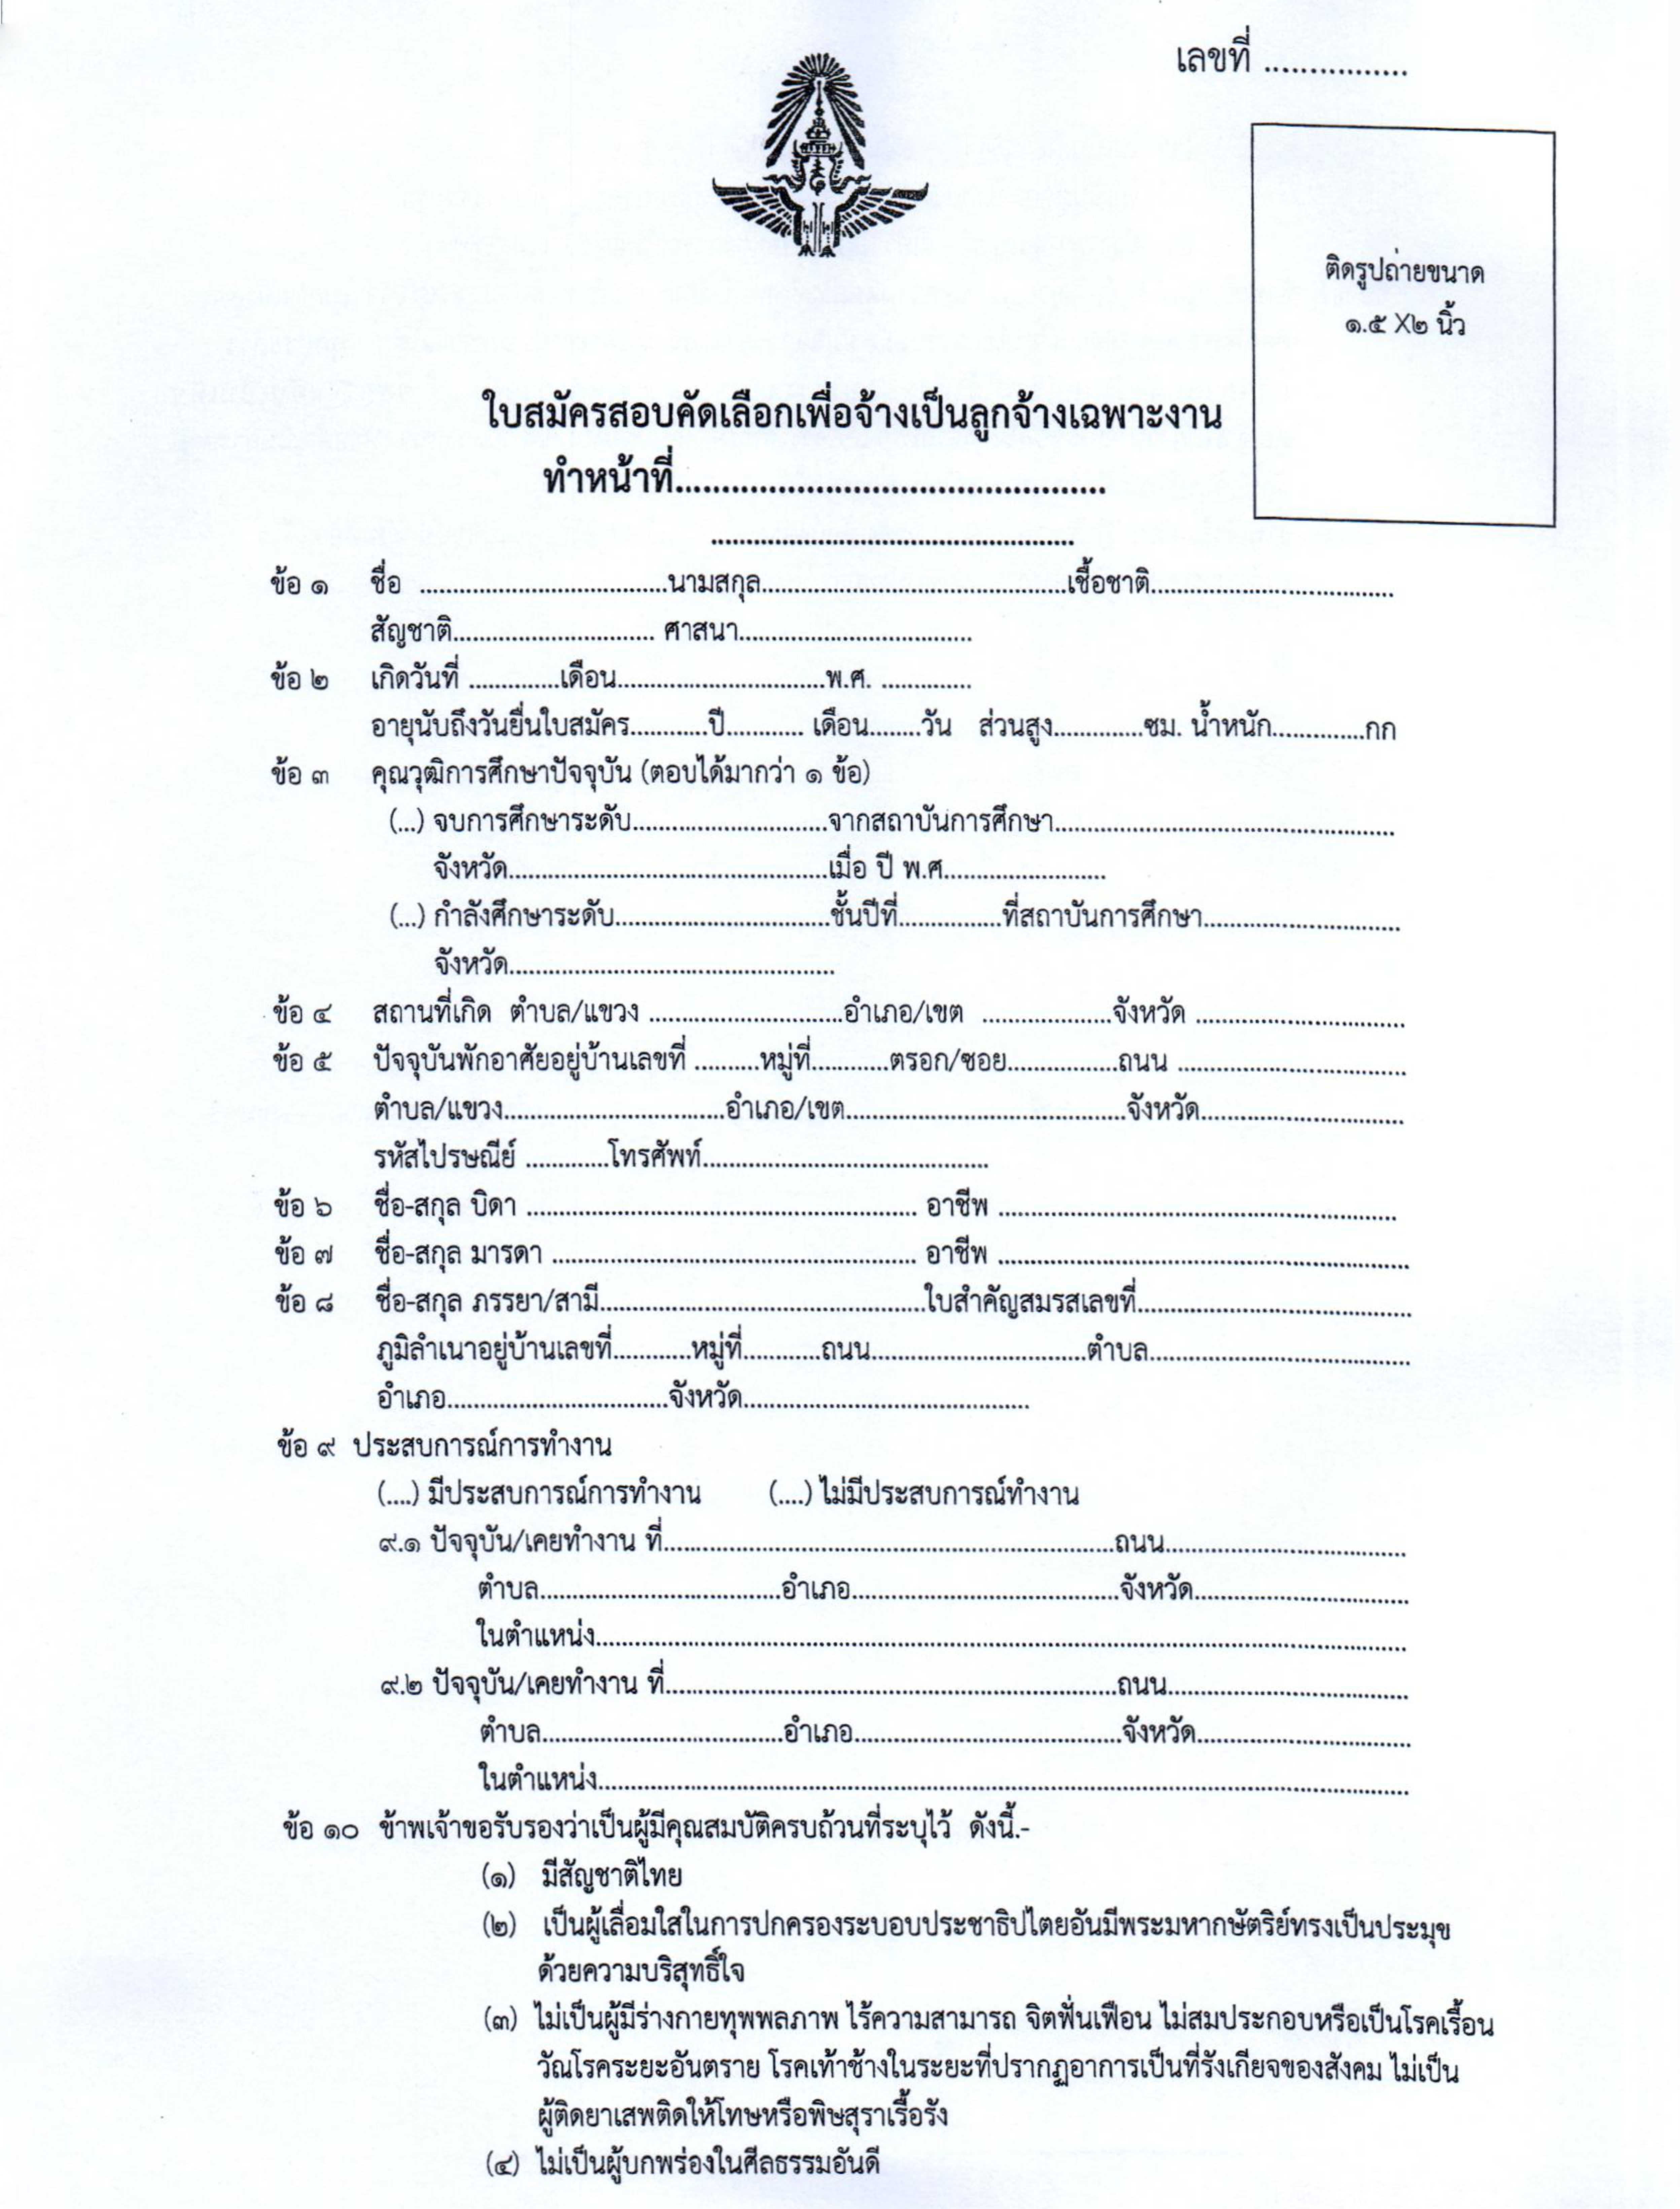 เลขที่ ................
ติดรูปถ่ายขนาด
๑.๕ X๒ นิ้ว
ใบสมัครสอบคัดเลือกเพื่อจ้างเป็นลูกจ้างเฉพาะงาน
ทำหน้าที่..............................................
........................................................
ข้อ ๑ ชื่อ ......................................นามสกุล...............................................เชื้อชาติ.....................................
สัญชาติ............................... ศาสนา....................................
ข้อ ๒ เกิดวันที่ ..............เดือน................................พ.ศ. ..............
อายุนับถึงวันยื่นใบสมัคร............ปี............ เดือน........วัน ส่วนสูง..............ซม. น้ำหนัก..............กก
ข้อ ๓ คุณวุฒิการศึกษาปัจจุบัน (ตอบได้มากว่า ๑ ข้อ)
(...) จบการศึกษาระดับ..............................จากสถาบันการศึกษา....................................................
จังหวัด.................................................เมื่อ ปี พ.ศ.........................
(...) กำลังศึกษาระดับ.................................ชั้นปีที่................ที่สถาบันการศึกษา..............................
จังหวัด..................................................
ข้อ ๔ สถานที่เกิด ตำบล/แขวง ..............................อำเภอ/เขต ....................จังหวัด ................................
ข้อ ๕ ปัจจุบันพักอาศัยอยู่บ้านเลขที่ ..........หมู่ที่............ตรอก/ซอย.................ถนน ...................................
ตำบล/แขวง..................................อำเภอ/เขต...........................................จังหวัด...............................
รหัสไปรษณีย์ .............โทรศัพท์............................................
ข้อ ๖ ชื่อ-สกุล บิดา ............................................................ อาชีพ .............................................................
ข้อ ๗ ชื่อ-สกุล มารดา ........................................................ อาชีพ ...............................................................
ข้อ ๘ ชื่อ-สกุล ภรรยา/สามี..................................................ใบสำคัญสมรสเลขที่..........................................
ภูมิลำเนาอยู่บ้านเลขที่............หมู่ที่............ถนน.................................ตำบล........................................
อำเภอ..................................จังหวัด............................................
ข้อ ๙ ประสบการณ์การทำงาน
(....) มีประสบการณ์การทำงาน (....) ไม่มีประสบการณ์ทำงาน
๙.๑ ปัจจุบัน/เคยทำงาน ที่.....................................................................ถนน.....................................
ตำบล.....................................อำเภอ.........................................จังหวัด.................................
ในตำแหน่ง............................................................................................................................
๙.๒ ปัจจุบัน/เคยทำงาน ที่.....................................................................ถนน.....................................
ตำบล.....................................อำเภอ.........................................จังหวัด.................................
ในตำแหน่ง............................................................................................................................
ข้อ ๑๐ ข้าพเจ้าขอรับรองว่าเป็นผู้มีคุณสมบัติครบถ้วนที่ระบุไว้ ดังนี้.-
(๑) มีสัญชาติไทย
(๒) เป็นผู้เลื่อมใสในการปกครองระบอบประชาธิปไตยอันมีพระมหากษัตริย์ทรงเป็นประมุข
ด้วยความบริสุทธิ์ใจ
(๓) ไม่เป็นผู้มีร่างกายทุพพลภาพ ไร้ความสามารถ จิตฟั่นเฟือน ไม่สมประกอบหรือเป็นโรคเรื้อน
วัณโรคระยะอันตราย โรคเท้าช้างในระยะที่ปรากฏอาการเป็นที่รังเกียจของสังคม ไม่เป็น
ผู้ติดยาเสพติดให้โทษหรือพิษสุราเรื้อรัง
(๔) ไม่เป็นผู้บกพร่องในศีลธรรมอันดี